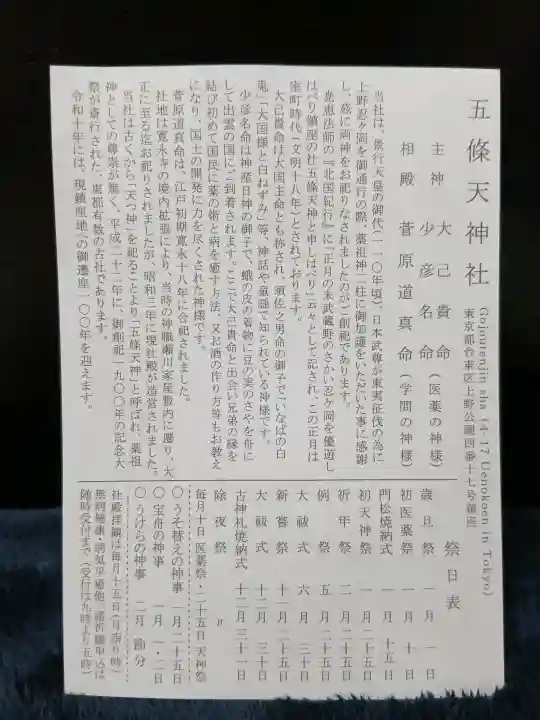 五條天神社
Gojoutenjin sha (4-17 Uenokoen in Tokyo)
東京都台東区上野公園四番十七号鎮座
主神 大己貴命
少彦名命(医薬の神様)
相殿 菅原道真命(学問の神様)
当社は、景行天皇の御代(一一〇年頃)、日本武尊が東夷征伐の為に
上野忍ヶ岡を御通行の際、薬祖神二柱に御加護をいただいた事に感謝
し、茲に両神をお祀りなされましたのがご創祀であります。
尭恵法師の『北国紀行』に「正月の末武蔵野のさかい忍ヶ岡を優遊し
はべり鎮座の社五條天神と申しはべり」云々として記され、この正月は
室町時代(文明十八年)とされております。
大己貴命は大国主命とも称され、須佐之男命の御子で「いなばの白
兎」「大国様と白ねずみ」等、神話や童謡で知られている神様です。
少彦名命は神産日神の御子で、蛾の皮の着物に豆の実のさやを舟に
して出雲の国にご到着されます。ここで大己貴命と出会い兄弟の縁を
結び初めて国民に薬の術と病を癒す方法、又お酒の作り方等もお教え
になり、国土の開発に力を尽くされた神様です。
菅原道真命は、江戸初期寛永十八年に合祀されました。
社地は寛永寺の境内拡張により、当時の神職瀬川家屋敷内に遷り、大
正に至る迄お祀りされましたが、昭和三年に現社殿が造営されました。
当社は古くから「天つ神」を祀ることより「五條天神」と呼ばれ、薬祖
神としての尊崇が篤く、平成二十二年に、御創祀一九〇〇年の記念大
祭が斎行された、東都有数の古社であります。
令和十年には、現鎮座地への御遷座一〇〇年を迎えます。
祭日表
歳旦祭 一月一日
初医薬祭 一月十日
門松焼納式 一月十五日
初天神祭 一月二十五日
祈年祭 二月二十五日
例祭 五月二十五日
大祓式 六月三十日
新嘗祭 十一月二十五日
大祓式 十二月三十日
古神札焼納式 十二月三十一日
除夜祭 〃
毎月十日 医薬祭・二十五日 天神祭
〇うそ替えの神事 一月二十五日
〇宝舟の神事 一月一・二日
〇うけらの神事 二月 節分
社殿拝観は毎月十五日(月詣り時)
無病健康・病気平癒他、諸祈願申込は
随時受付まで(受付は九時より五時)